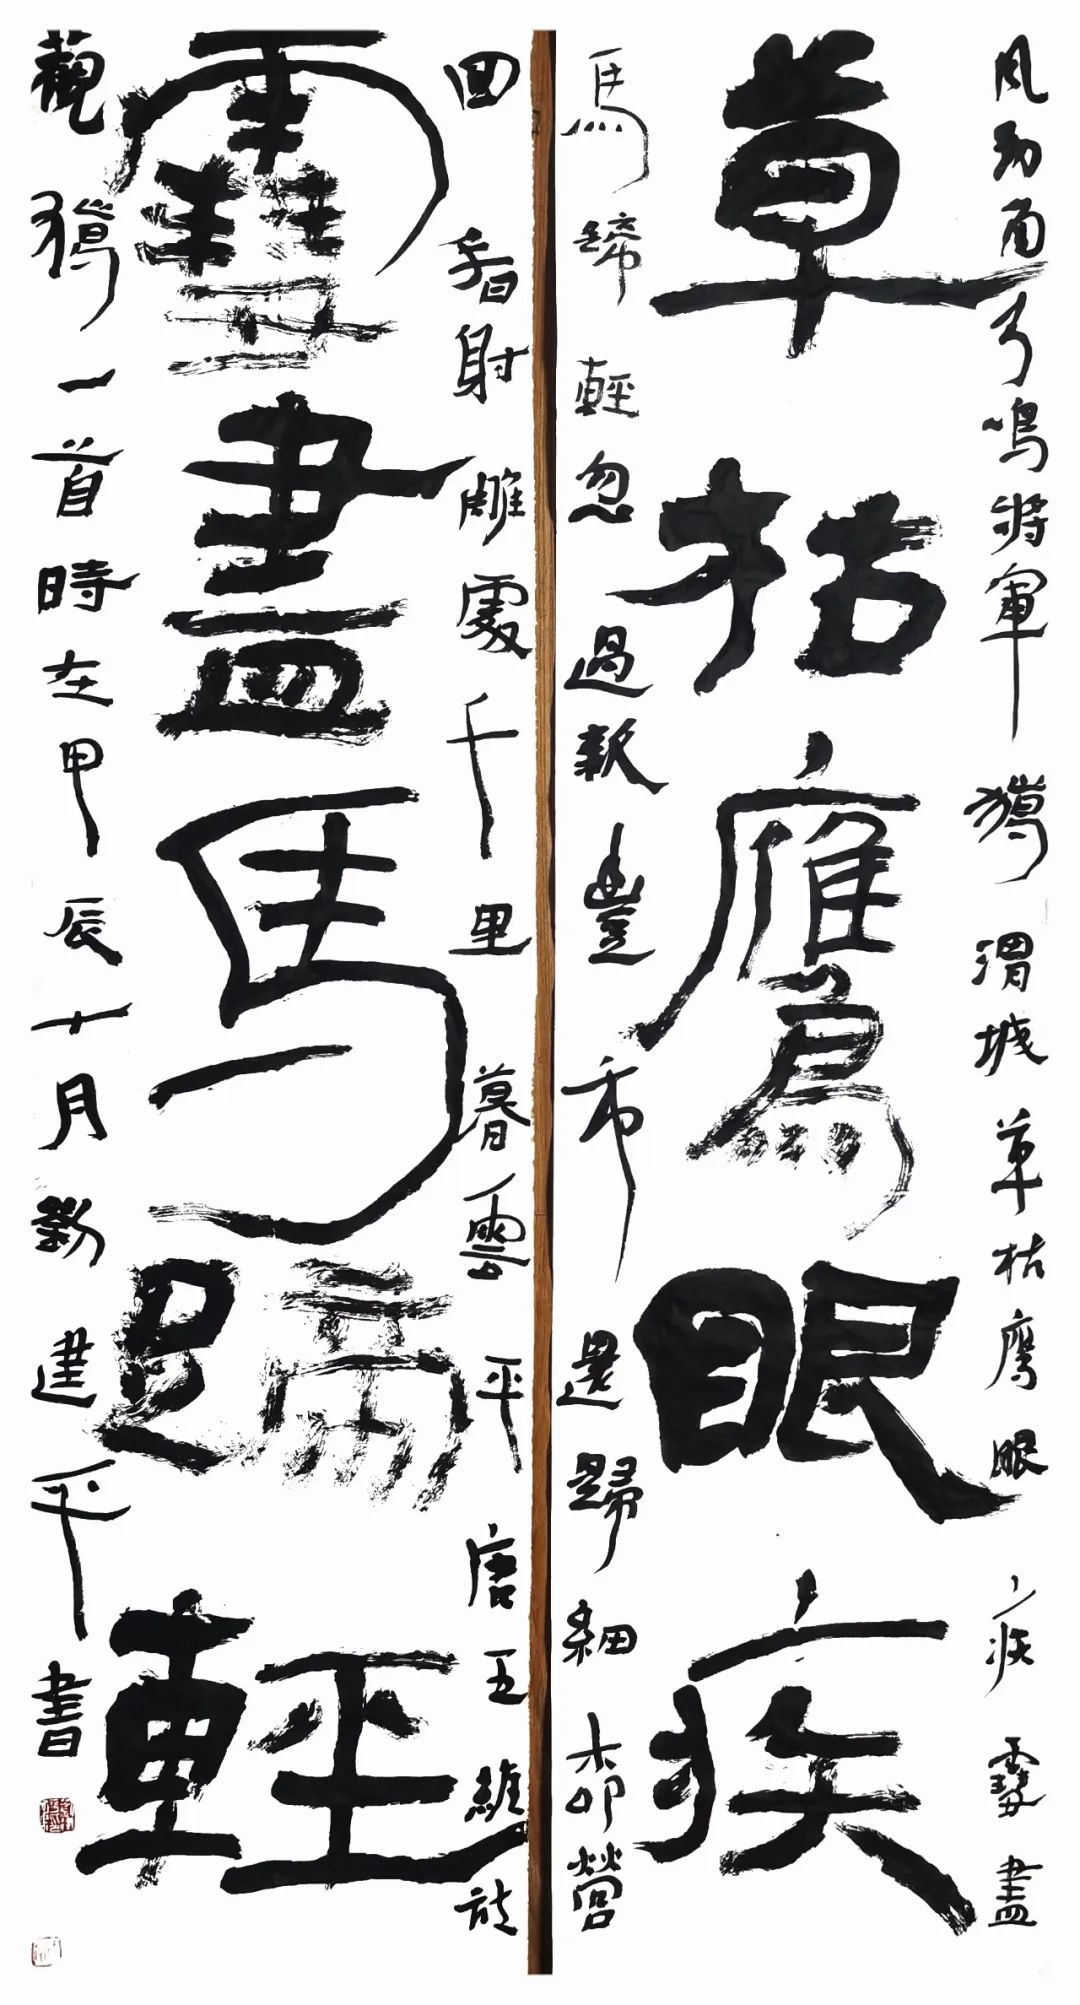 风勁角弓鳴將軍獵渭城草枯鷹眼疾雪盡
草枯鷹眼疾
馬蹄輕忽過新豐市還歸細柳營
回看射雕處千里暮雲平唐王維詩
雪盡馬蹄輕
觀獵一首時在甲辰十月劉建平書